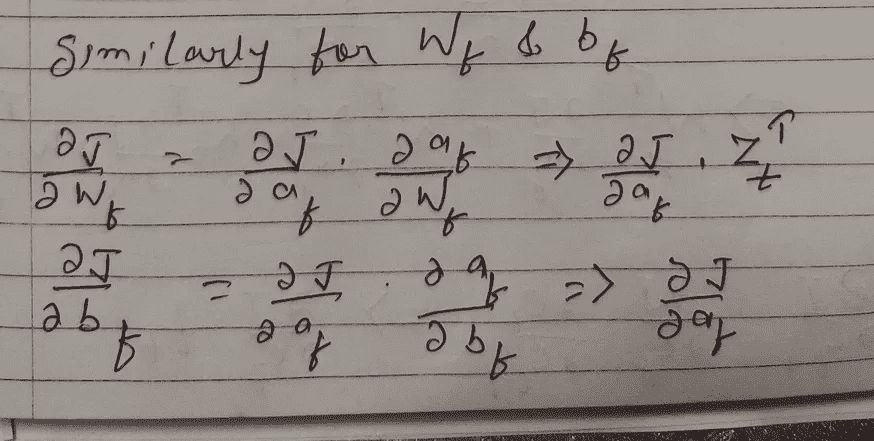 Similarly for W_f & b_f
∂J/∂W_f = ∂J/∂a_f · ∂a_f/∂W_f => ∂J/∂a_f · Z_t^T
∂J/∂b_f = ∂J/∂a_f · ∂a_f/∂b_f => ∂J/∂a_f